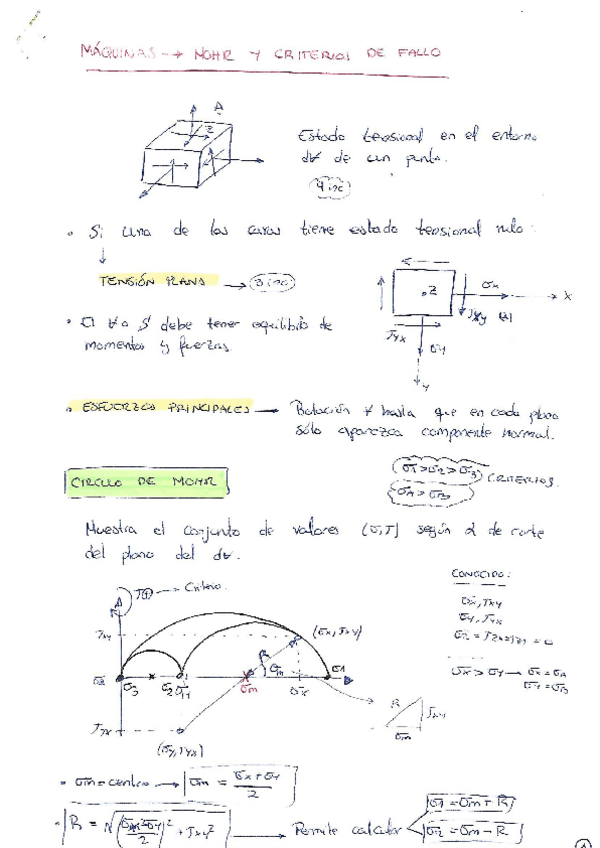 MÁQUINAS → MOHR Y CRITERIOS DE FALLO
A
Z
Estado tensional en el entorno
d∀ de un punto.
9 inc
• Si una de las caras tiene estado tensional nulo:
↓
TENSIÓN PLANA → 3 inc
σx
Z
X
Jxy
• El ∀ o S debe tener equilibrio de
momentos y fuerzas.
Jyx
σy
y
• ESFUERZOS PRINCIPALES — Rotación ∀ hasta que en cada plano
sólo aparezca componente normal.
CIRCULO DE MOHR
σ1>σ2>σ3
CRITERIOS.
σA>σB
Muestra el conjunto de valores (σ,T) según α de corte
del plano del d∀.
CONOCIDO:
Criterio.
σx, Jxy
σy, Jyx
Jxy
(σx, Jxy)
R
σ3
σ2
σm
σx
σ1
σx > σy → σx = σA
σy = σB
Jyx
R
Jxy
σm
(σy, Jyx)
• σm = centro → σm = σx + σy / 2
• R = √(σx-σy / 2)² + Jxy² → Permite calcular
σ1 = σm + R
σ2 = σm - R